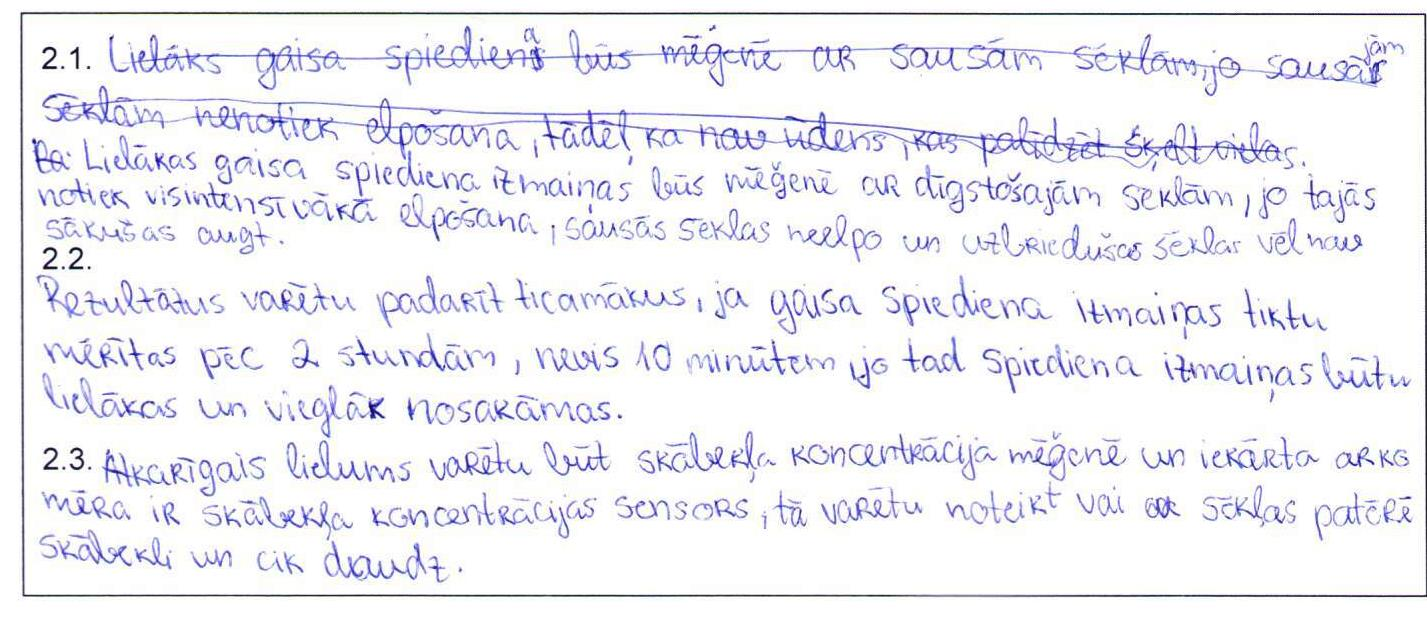 2.1. Lielāks gaisa spediens būs mēģenē ar sausām sēklām, jo sausajām
sēklām nenotiek elpošana, tādēļ ka nav ūdens, kas palīdzēt šķelt vielas.
Lielākas gaisa spiediena izmaiņas būs mēģenē ar dīgstošajām sēklām, jo tajās
notiek visintensīvākā elpošana, sausās sēklas neelpo un uzbriedušas sēklas vēl nav
sākušas augt.
2.2.
Rezultātus varētu padarīt ticamākus, ja gaisa spiediena izmaiņas tiktu
mērītas pēc 2 stundām, nevis 10 minūtem, jo tad spiediena izmaiņas būtu
lielākas un vieglāk nosakāmas.
2.3. Atkarīgais lielums varētu būt skābekļa koncentrācija mēģenē un iekārta ar ko
mēra ir skābekļa koncentrācijas sensors, tā varētu noteikt vai sēklas patērē
skābekli un cik daudz.